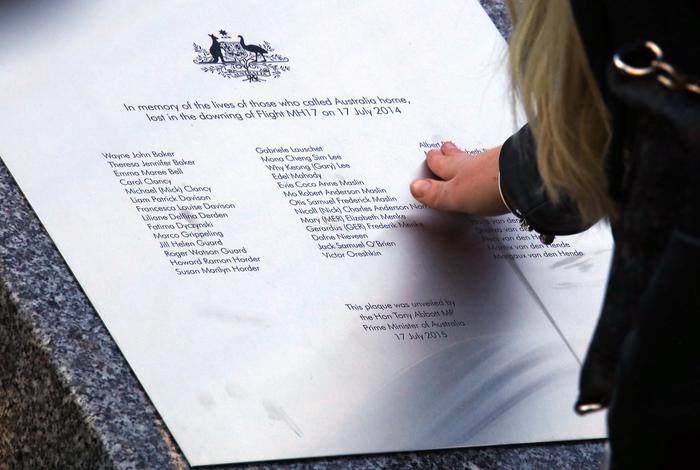 In memory of the lives of those who called Australia home,
lost in the downing of Flight MH17 on 17 July 2014
Wayne John Baker
Theresa Jennifer Baker
Emma Maree Bell
Carol Clancy
Michael (Mick) Clancy
Liam Patrick Davison
Francesca Louise Davison
Liliane Derden
Fatima Dyczynski
Marco Grippeling
Jill Helen Guard
Roger Watson Guard
Howard Raman Horder
Susan Marilyn Horder
Gabriele Lauschet
Mona Cheng Sim Lee
Why Keong (Gary) Lee
Edel Mahady
Evie Coco Anne Maslin
Mo Robert Anderson Maslin
Otis Samuel Frederick Maslin
Nicoll (Nick) Charles Anderson
Mary (MER) Elizabeth Menke
Gerardus (GER) Frederik Menke
Dafne Nieveen
Jack Samuel O'Brien
Victor Oreshkin
van den Hende
Margaux van den Hende
This plaque was unveiled by
the Hon Tony Abbott MP
Prime Minister of Australia
17 July 2015